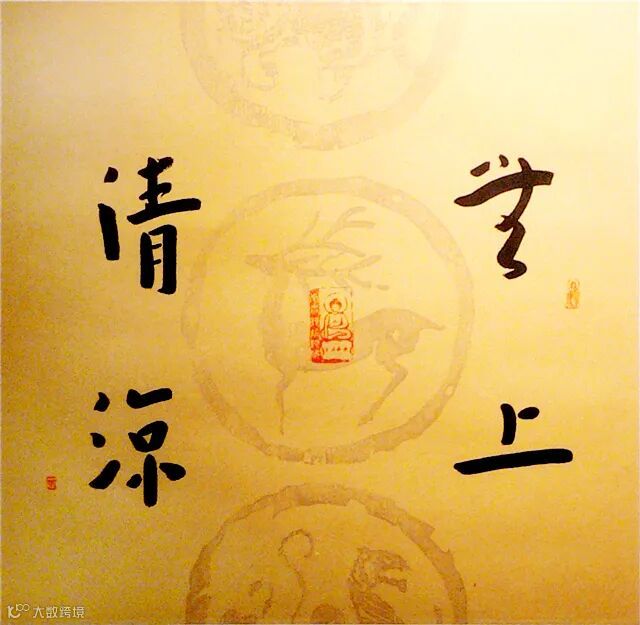 無上
清涼
大数跨境